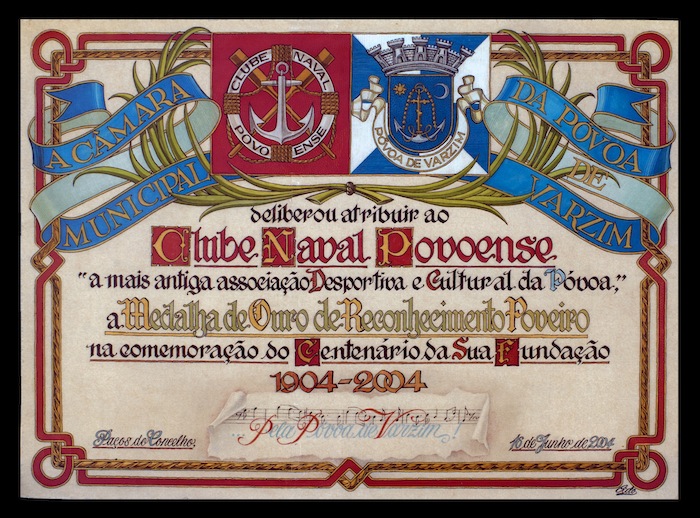 A CÂMARA
MUNICIPAL
CLUBE NAVAL
POVOENSE
PÓVOA DE VARZIM
DA PÓVOA
DE
VARZIM
deliberou atribuir ao
Clube Naval Povoense
"a mais antiga associação Desportiva e Cultural da Póvoa,"
a Medalha de Ouro de Reconhecimento Poveiro
na comemoração do Centenário da Sua Fundação
1904-2004
...Pela Póvoa de Varzim!
Paços do Concelho,
16 de Junho de 2004